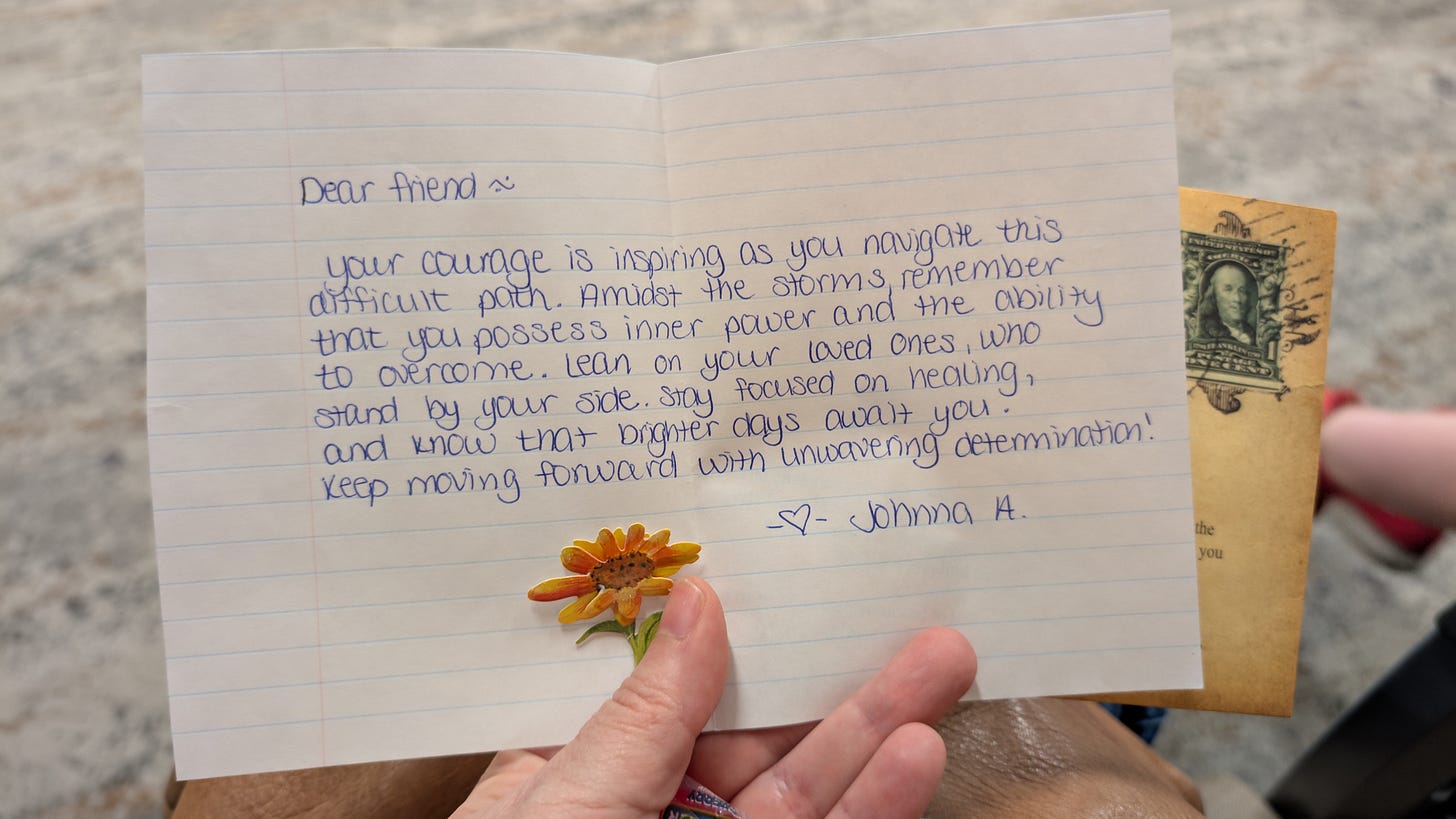 Dear friend ~
your courage is inspiring as you navigate this
difficult path. Amidst the storms, remember
that you possess inner power and the ability
to overcome. Lean on your loved ones, who
stand by your side. Stay focused on healing,
and know that brighter days await you.
Keep moving forward with unwavering determination!
-♡- Johnna A.
UNITED STATES
FRANKLIN
the
you